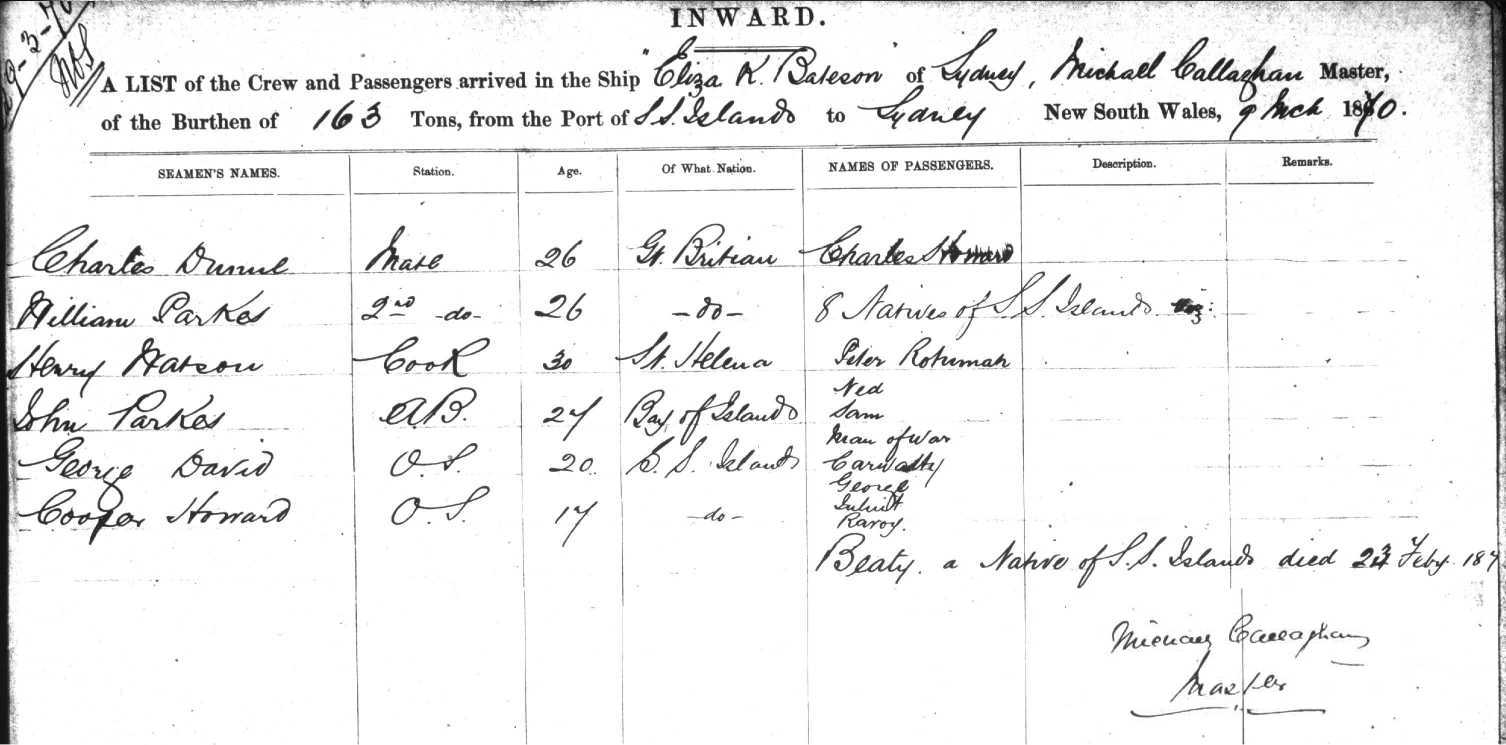 9-3-70
INWARD.
A LIST of the Crew and Passengers arrived in the Ship "Eliza K. Bateson" of Sydney, Michael Callaghan Master,
of the Burthen of 163 Tons, from the Port of S.S. Islands to Sydney New South Wales, 9 Mch 1870.
SEAMEN'S NAMES. Station. Age. Of What Nation. NAMES OF PASSENGERS. Description. Remarks.
Charles Mate 26 Gt. Britian Charles Howard
William Parkes 2nd -do- 26 -do- 8 Natives of S.S. Islands viz:
Henry Watson Cook 30 St. Helena Peter Rotumah
Ned
John Parkes A.B. 27 Bay of Islands Sam
Man of War
George David O.S. 20 S.S. Islands
George
Cooper Howard O.S. 17 -do-
Beaty. a Native of S.S. Islands died Feby 187
Michael Callaghan
Master